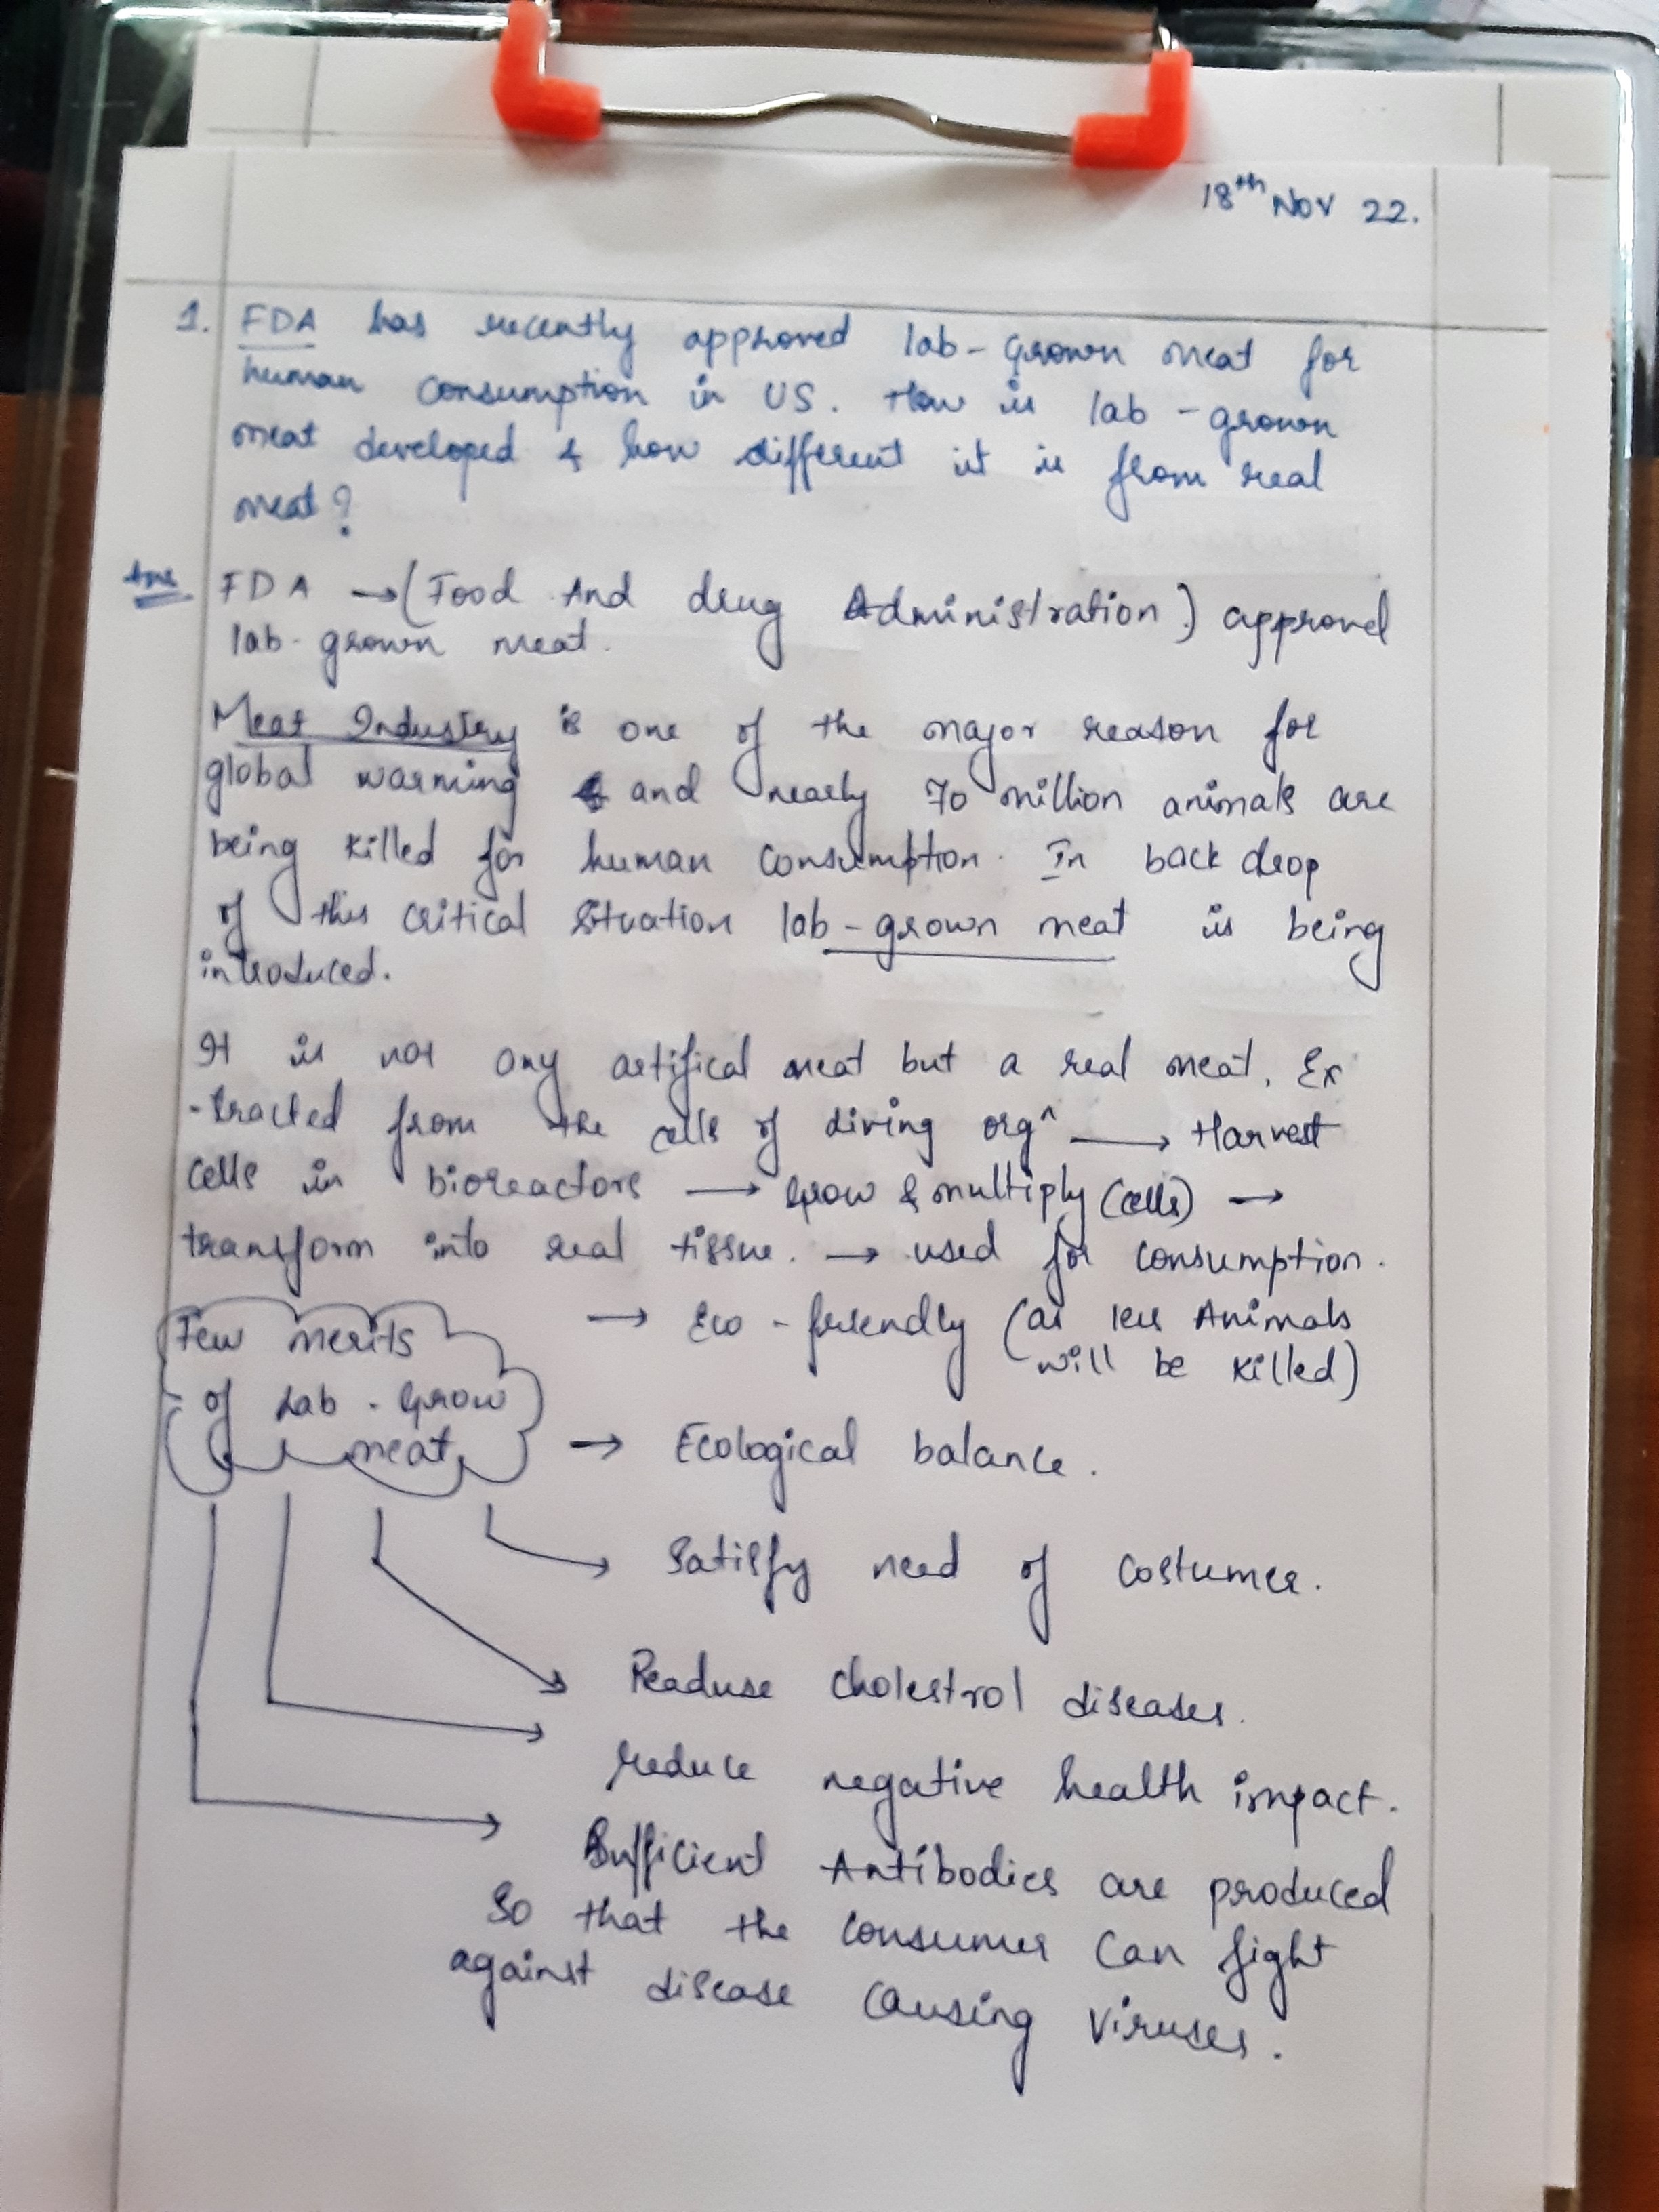 18th Nov 22.
1. FDA has recently approved lab-Grown meat for
human consumption in US. How is lab-grown
meat developed & how different it is from real
meat?
Ans FDA → (Food And drug Administration) approved
lab-grown meat.
Meat Industry is one of the major reason for
global warming and nearly 70 million animals are
being killed for human consumption. In back drop
of this critical situation lab-grown meat is being
introduced.
It is not any artifical meat but a real meat. Ex
-tracted from the cells of living org^ → Harvest
cells in bioreactors → Grow & multiply (cells) →
transform into real tissue. → used for consumption.
Few merits
of Lab-Grow
meat
→ Eco-friendly (as less Animals
will be killed)
→ Ecological balance.
Satisfy need of costumer.
Readuse cholestrol diseases.
reduce negative health impact.
Sufficient Antibodies are produced
So that the consumer can fight
against disease causing viruses.